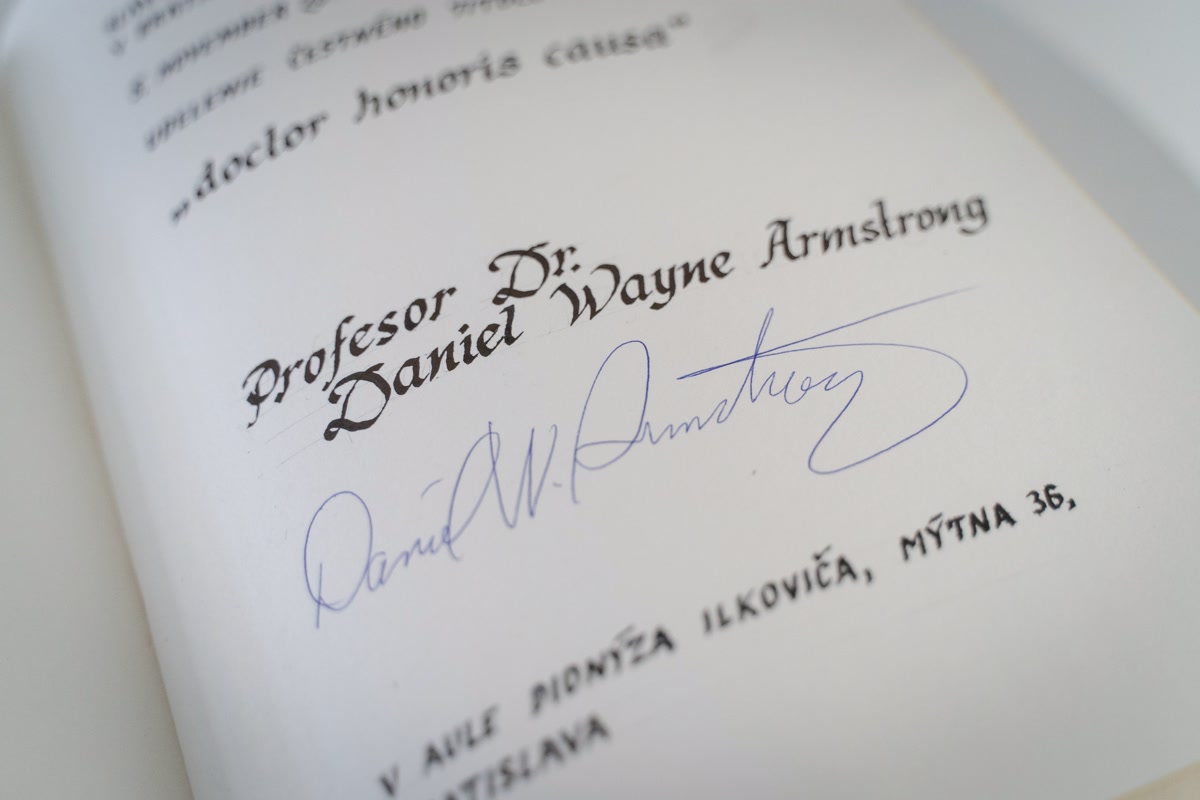 NOVEMBER
UDELENIE ČESTNÉHO
„doctor honoris causa"
Profesor Dr.
Daniel Wayne Armstrong
Daniel W. Armstrong
V AULE DIONÝZA ILKOVIČA, MÝTNA 36,
ATISLAVA